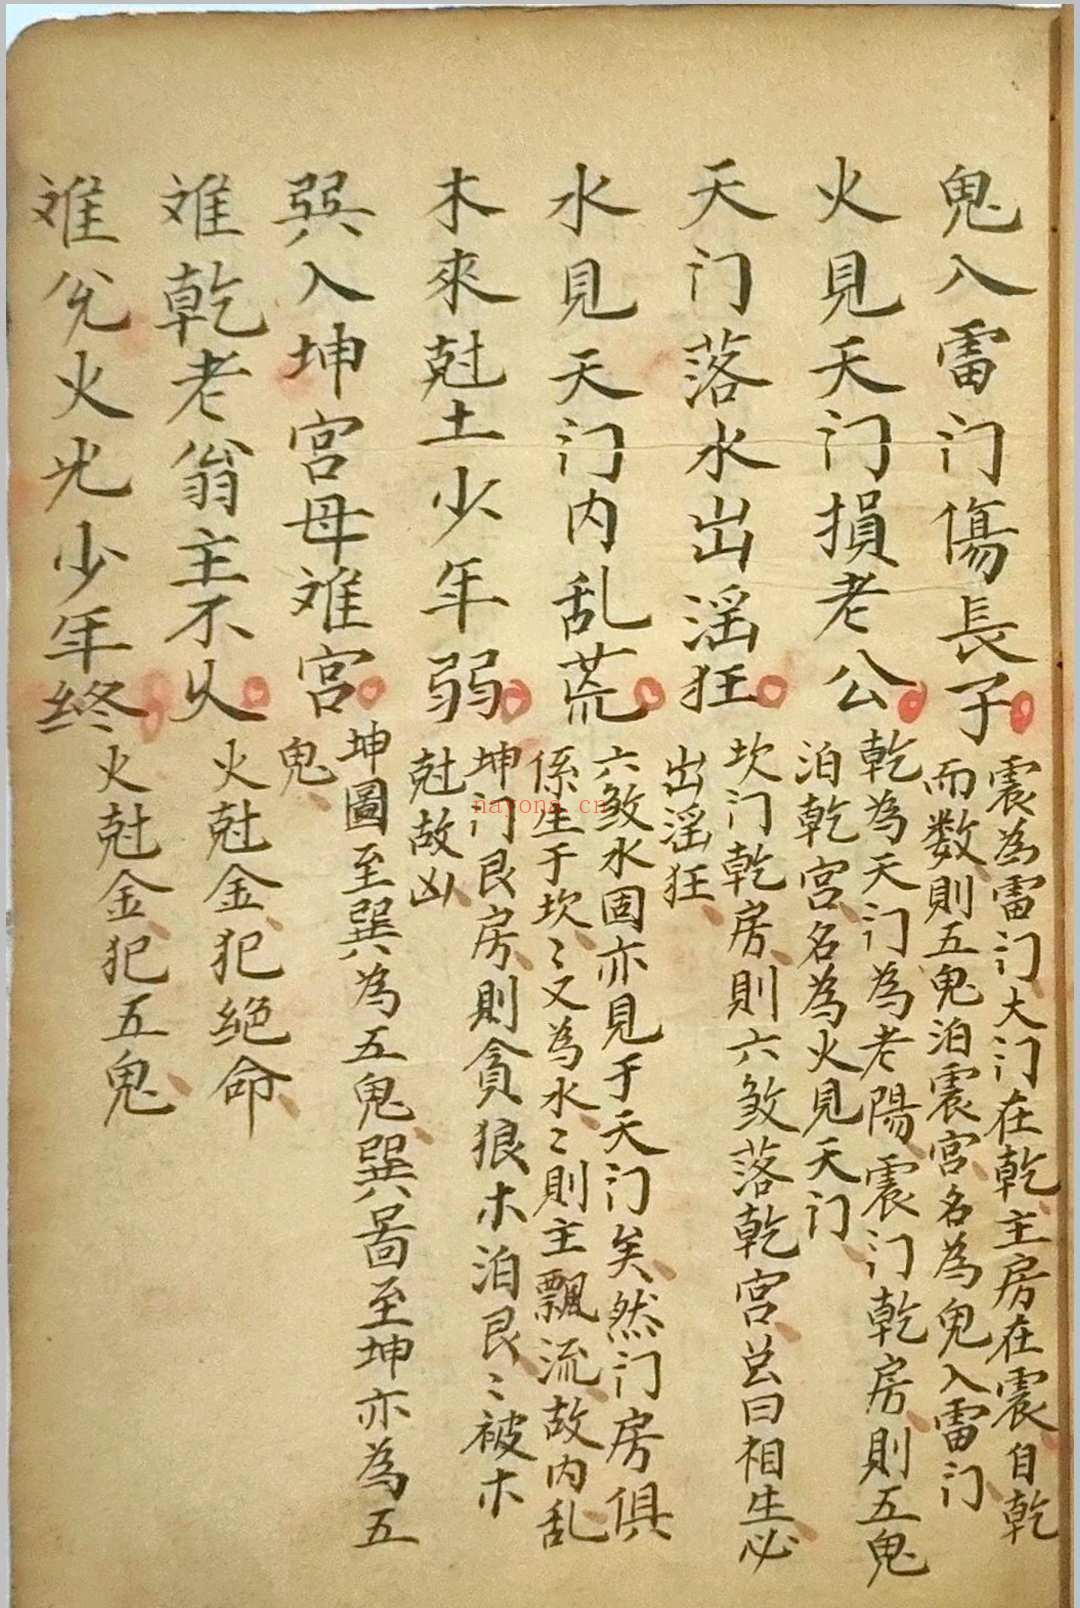 鬼入雷门傷長子
震為雷门大门在乾主房在震自乾
而数則五鬼泊震宮名為鬼入雷门
火見天门損老公
乾為天门為老陽震门乾房則五鬼
泊乾宮名為火見天门
天门落水出淫狂
坎门乾房則六煞落乾宮玆曰相生必
出淫狂
水見天门内乱荒
六煞水固亦見于天门矣然门房俱
係生于坎〻又為水〻則主飄流故内乱
木來尅土少年弱
坤门艮房則貪狼木泊艮〻被木
尅故凶
巽入坤宮母难宮
坤圖至巽為五鬼巽啚至坤亦為五
鬼
难乾老翁主不久
火尅金犯绝命
难兊火光少年终
火尅金犯五鬼
nayong.cn